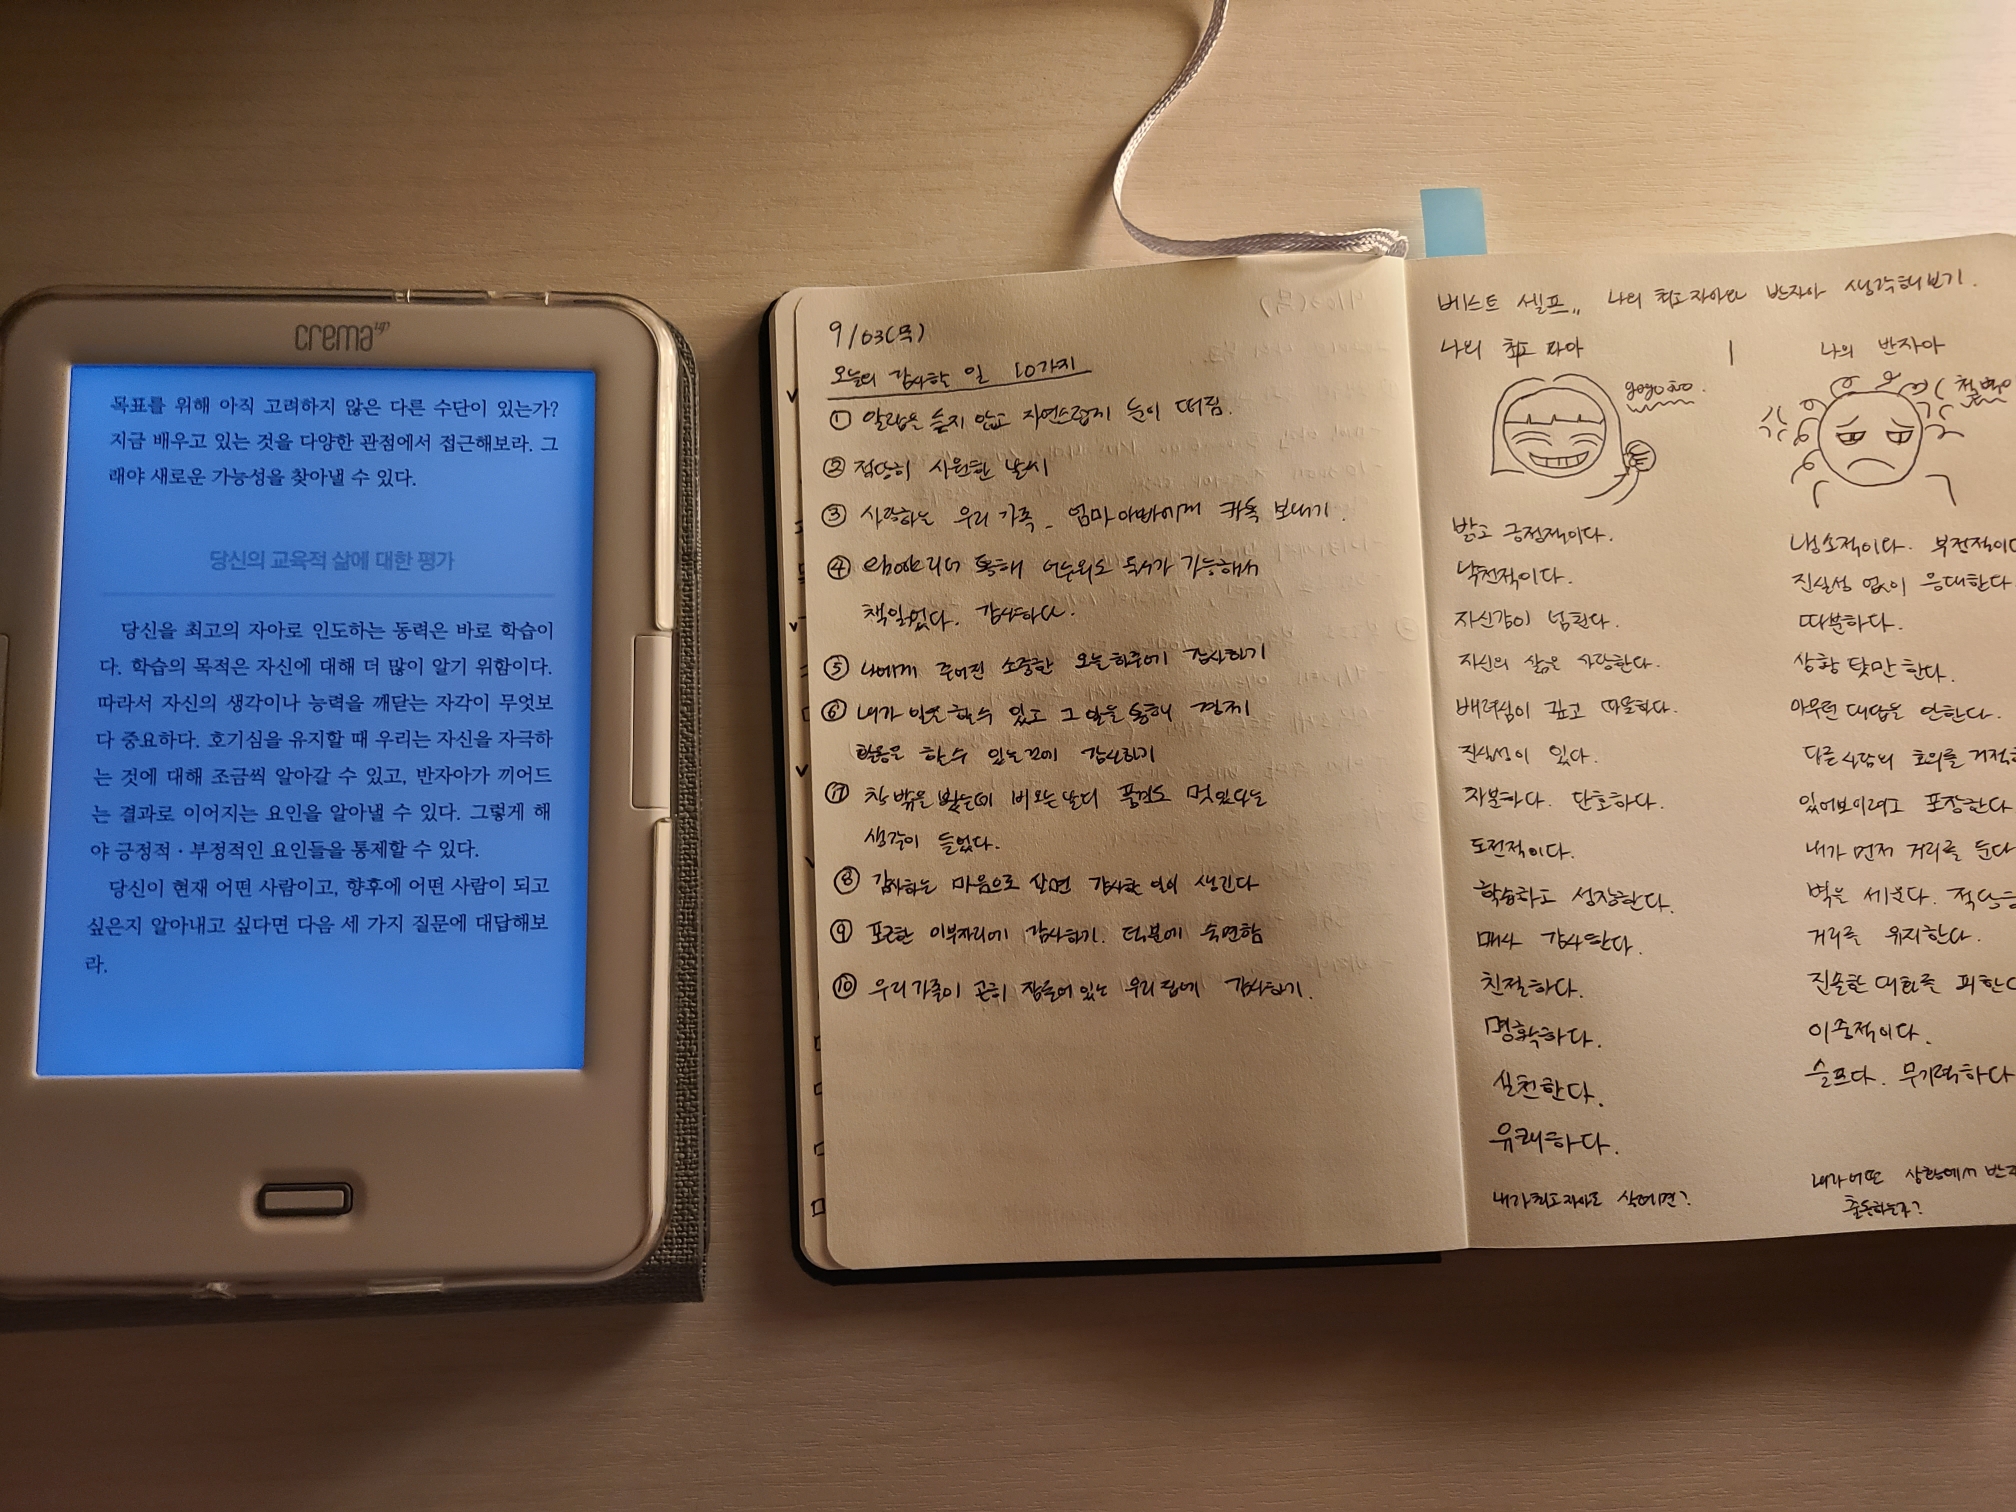 crema up
목표를 위해 아직 고려하지 않은 다른 수단이 있는가?
지금 배우고 있는 것을 다양한 관점에서 접근해보라. 그
래야 새로운 가능성을 찾아낼 수 있다.
당신의 교육적 삶에 대한 평가
당신을 최고의 자아로 인도하는 동력은 바로 학습이
다. 학습의 목적은 자신에 대해 더 많이 알기 위함이다.
따라서 자신의 생각이나 능력을 깨닫는 자각이 무엇보
다 중요하다. 호기심을 유지할 때 우리는 자신을 자극하
는 것에 대해 조금씩 알아갈 수 있고, 반자아가 끼어드
는 결과로 이어지는 요인을 알아낼 수 있다. 그렇게 해
야 긍정적·부정적인 요인들을 통제할 수 있다.
당신이 현재 어떤 사람이고, 향후에 어떤 사람이 되고
싶은지 알아내고 싶다면 다음 세 가지 질문에 대답해보
라.
9/03(목)
오늘의 감사한 일 10가지
① 알람을 듣지 않고 자연스럽게 눈이 떠짐.
② 적당히 시원한 날씨
③ 사랑하는 우리 가족 - 엄마아빠에게 카톡 보내기.
④ 통해 독서가 가능해서
책읽었다. 감사하다.
⑤ 나에게 주어진 소중한 오늘하루에 감사하기
⑥ 내가 일을 할수 있고 그 일을 통해 경제
활동을 할수 있는것에 감사하기
⑦ 창 밖을 봤는데 비오는날의 풍경도 멋있다는
생각이 들었다.
⑧ 감사하는 마음으로 살면 감사한 일이 생긴다
⑨ 포근한 이부자리에 감사하기. 덕분에 숙면함
⑩ 우리가족이 곤히 잠들어 있는 우리집에 감사하기.
베스트 셀프,, 나의 최고자아와 반자아 생각해보기.
나의 최고 자아 | 나의 반자아
gogo
밝고 긍정적이다.
낙천적이다.
자신감이 넘친다.
자신의 삶을 사랑한다.
배려심이 깊고 따뜻하다.
진실성이 있다.
차분하다. 단호하다.
도전적이다.
학습하고 성장한다.
매사 감사한다.
친절하다.
명확하다.
실천한다.
유쾌하다.
내가 최고자아로 살려면?
냉소적이다. 부정적이다
진실성 없이 응대한다.
따분하다.
상황 탓만 한다.
아무런 대답을 안한다.
다른사람의 호의를 거절
있어보이려고 포장한다
내가 먼저 거리를 둔다
벽을 세운다. 적당한
거리를 유지한다.
진솔한 대화를 피한다
이중적이다.
슬프다. 무기력하다
내가 어떤 상황에서 반자
출동하는가?